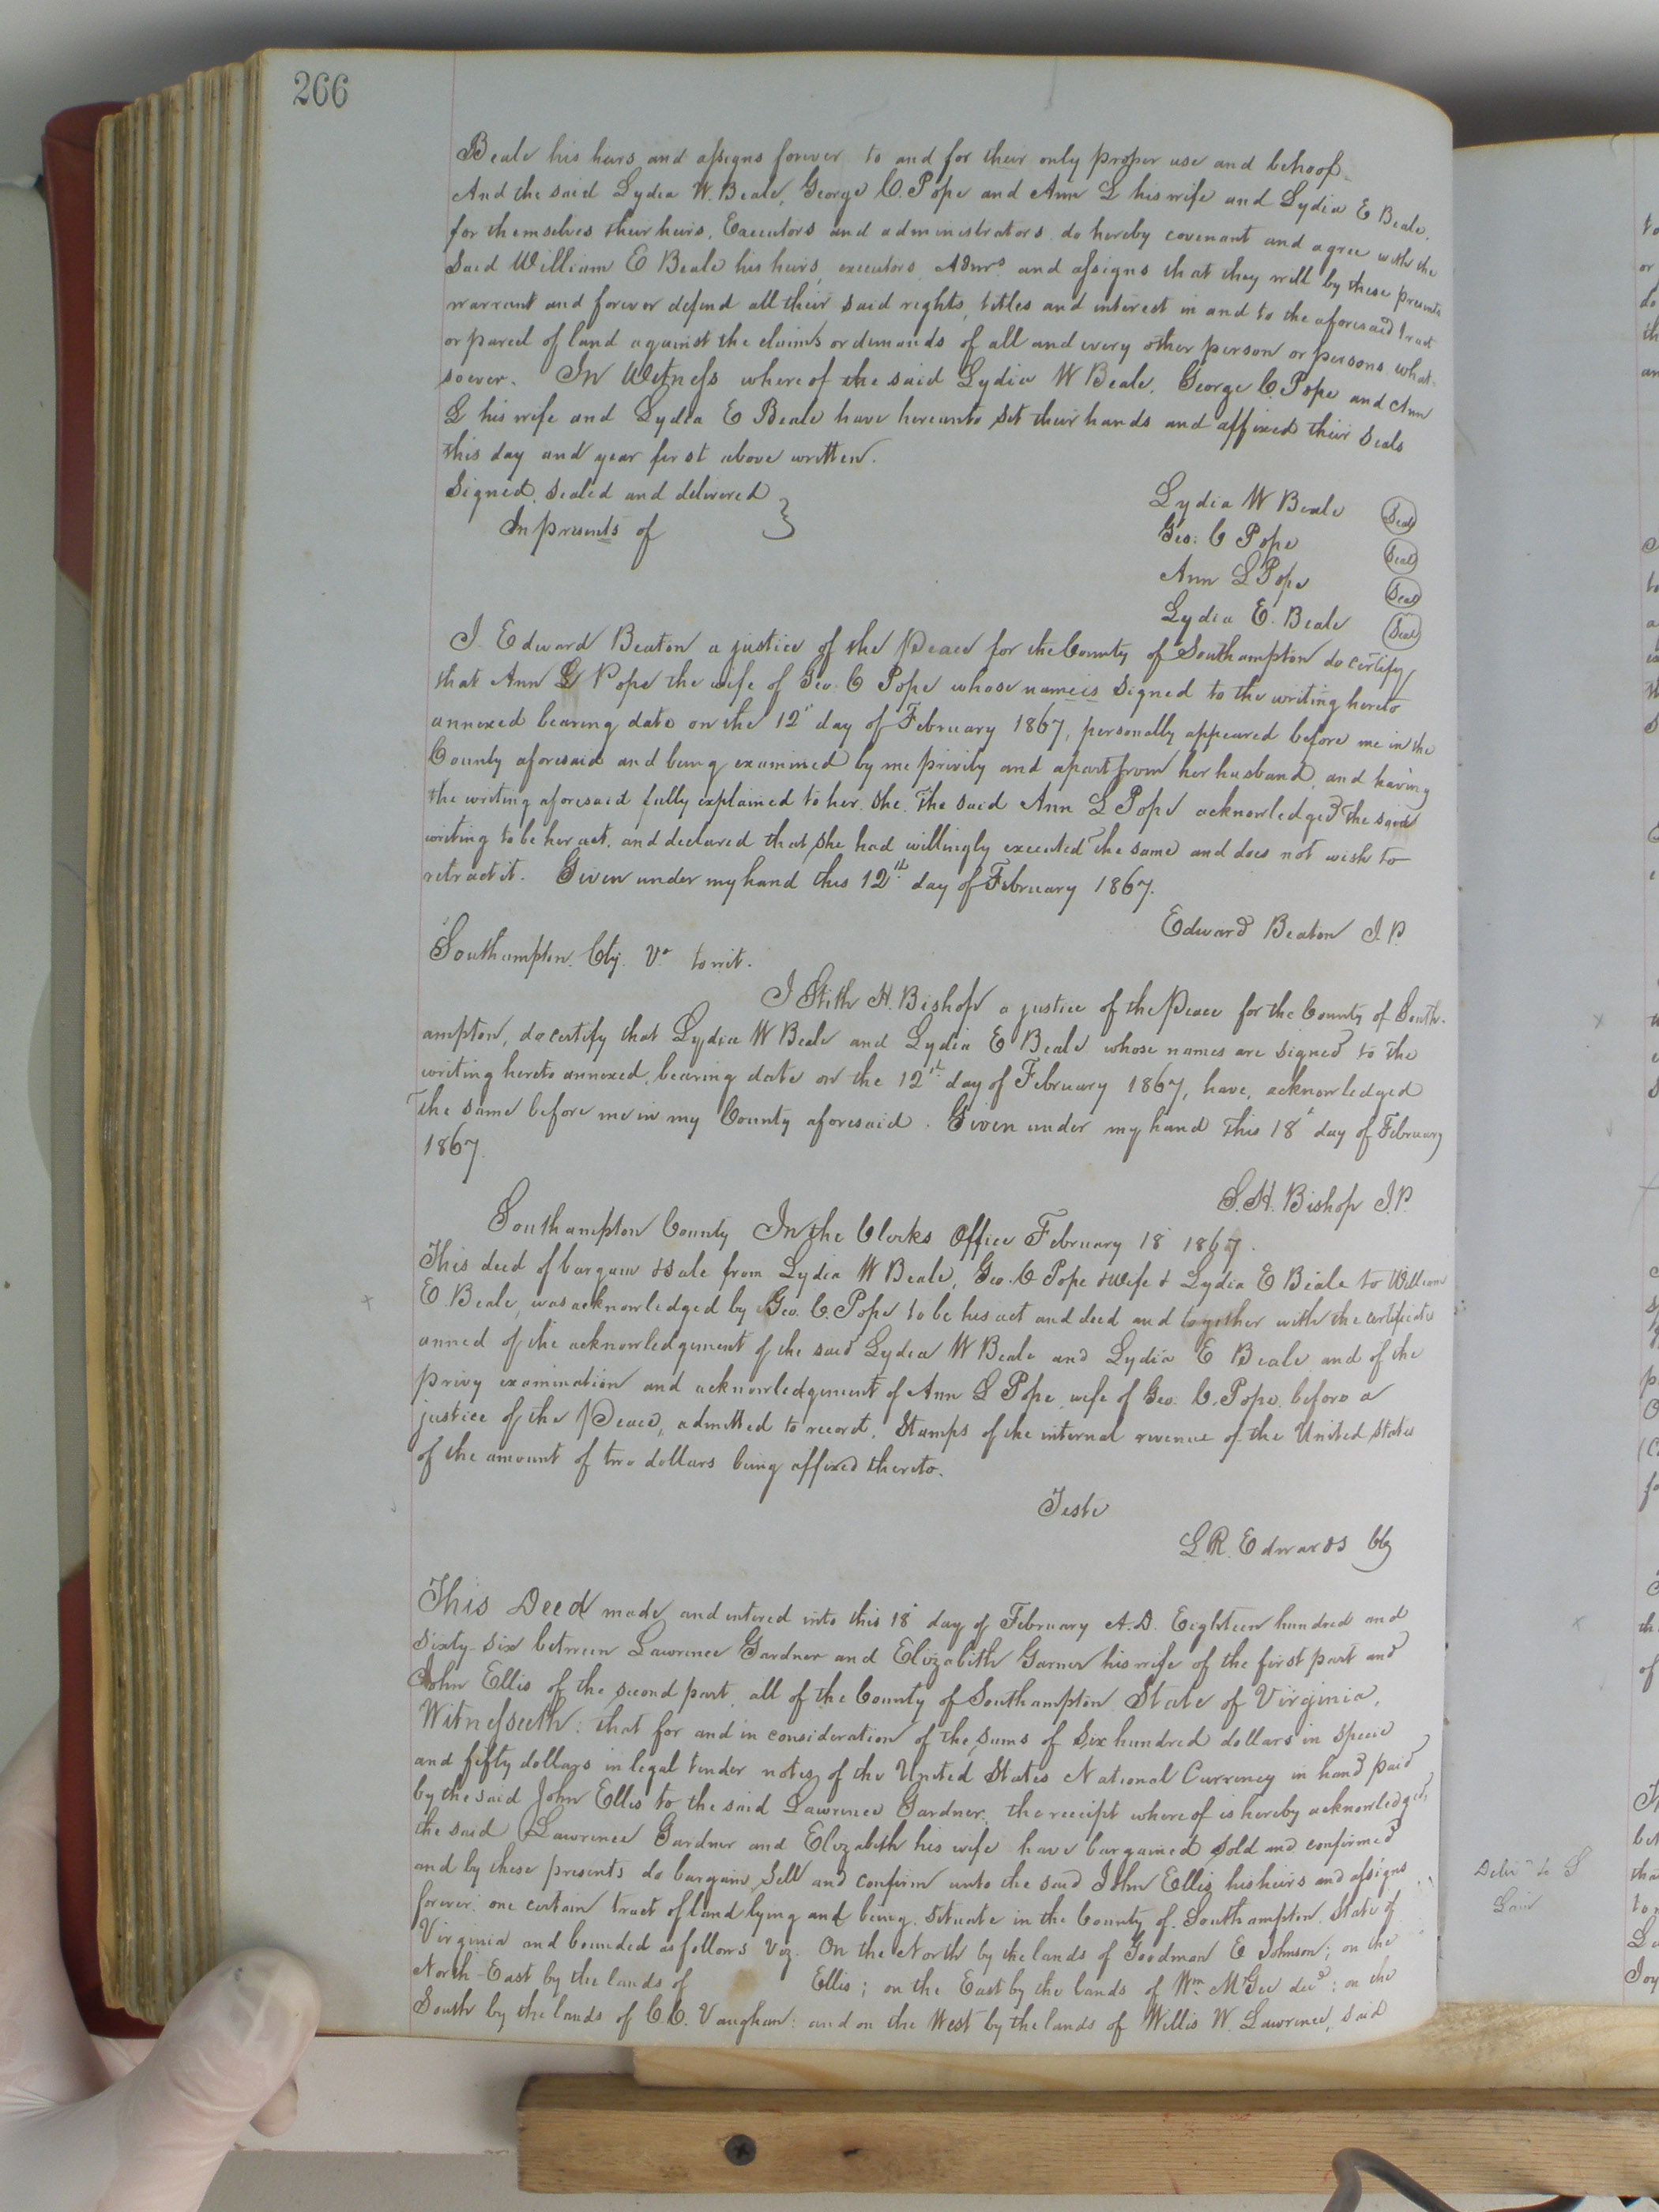 266
Beale his heirs and assigns forever to and for their only proper use and behoof.
And the said Lydia W. Beale, George C. Pope and Ann L his wife and Lydia E Beale,
for themselves their heirs, Executors and administrators do hereby covenant and agree with the
said William E Beale his heirs, executors, Admrs and assigns that they will by these presents
warrant and forever defend all their said rights, titles and interest in and to the aforesaid tract
or parcel of land against the claims or demands of all and every other person or persons what-
soever. In Witness whereof the said Lydia W Beale, George C. Pope and Ann
L his wife and Lydia E Beale have hereunto set their hands and affixed their seals
this day and year first above written.
Signed, Sealed and delivered
In presents of
Lydia W Beale Seal
Geo: C Pope Seal
Ann L Pope Seal
Lydia E. Beale Seal
I Edward Beaton a justice of the Peace for the County of Southampton do certify
that Ann L Pope the wife of Geo. C Pope whose name is signed to the writing hereto
annexed bearing date on the 12" day of February 1867, personally appeared before me in the
County aforesaid and being examined by me privily and apart from her husband, and having
the writing aforesaid fully explained to her, she, the said Ann L Pope acknowledged the said
writing to be her act, and declared that she had willingly executed the same and does not wish to
retract it. Given under my hand this 12th day of February 1867.
Edward Beaton J.P.
Southampton Cty. Va towit.
I Stith H. Bishop a justice of the Peace for the County of South-
ampton, do certify that Lydia W Beale and Lydia E Beale whose names are signed to the
writing hereto annexed, bearing date on the 12th day of February 1867, have, acknowledged
the same before me in my County aforesaid. Given under my hand this 18 day of February
1867.
S. H. Bishop J.P.
Southampton County In the Clerks Office February 18 1867.
This deed of bargain & Sale from Lydia W Beale, Geo. C Pope & Wife & Lydia E Beale to William
E. Beale, was acknowledged by Geo. C. Pope to be his act and deed and together with the certificate
anned of the acknowledgement of the said Lydia W Beale and Lydia E Beale and of the
privy examination and acknowledgement of Ann L Pope, wife of Geo. C. Pope, before a
justice of the Peace, admitted to record, Stamps of the internal revenue of the United States
of the amount of two dollars being affixed thereto.
Teste
L. R. Edwards Clk
This Deed made and entered into this 18 day of February A.D. Eighteen hundred and
sixty-six between Lawrence Gardner and Elizabeth Garner his wife of the first part and
John Ellis of the second part, all of the County of Southampton State of Virginia,
Witnesseth: that for and in consideration of the sums of six hundred dollars in specie
and fifty dollars in legal tender notes of the United States National Currency in hand paid
by the said John Ellis to the said Lawrence Gardner, the receipt whereof is hereby acknowledged,
the said Lawrence Gardner and Elizabeth his wife have bargained sold and confirmed
and by these presents do bargain, Sell and confirm unto the said John Ellis, his heirs and assigns
forever, one certain tract of land lying and being situate in the County of Southampton State of
Virginia and bounded as follows viz. On the North by the lands of Goodman E Johnson; on the
North-East by the lands of Ellis; on the East by the lands of Wm McGee decd; on the
South by the lands of C. C. Vaughan: and on the West by the lands of Willis W. Lawrence, said